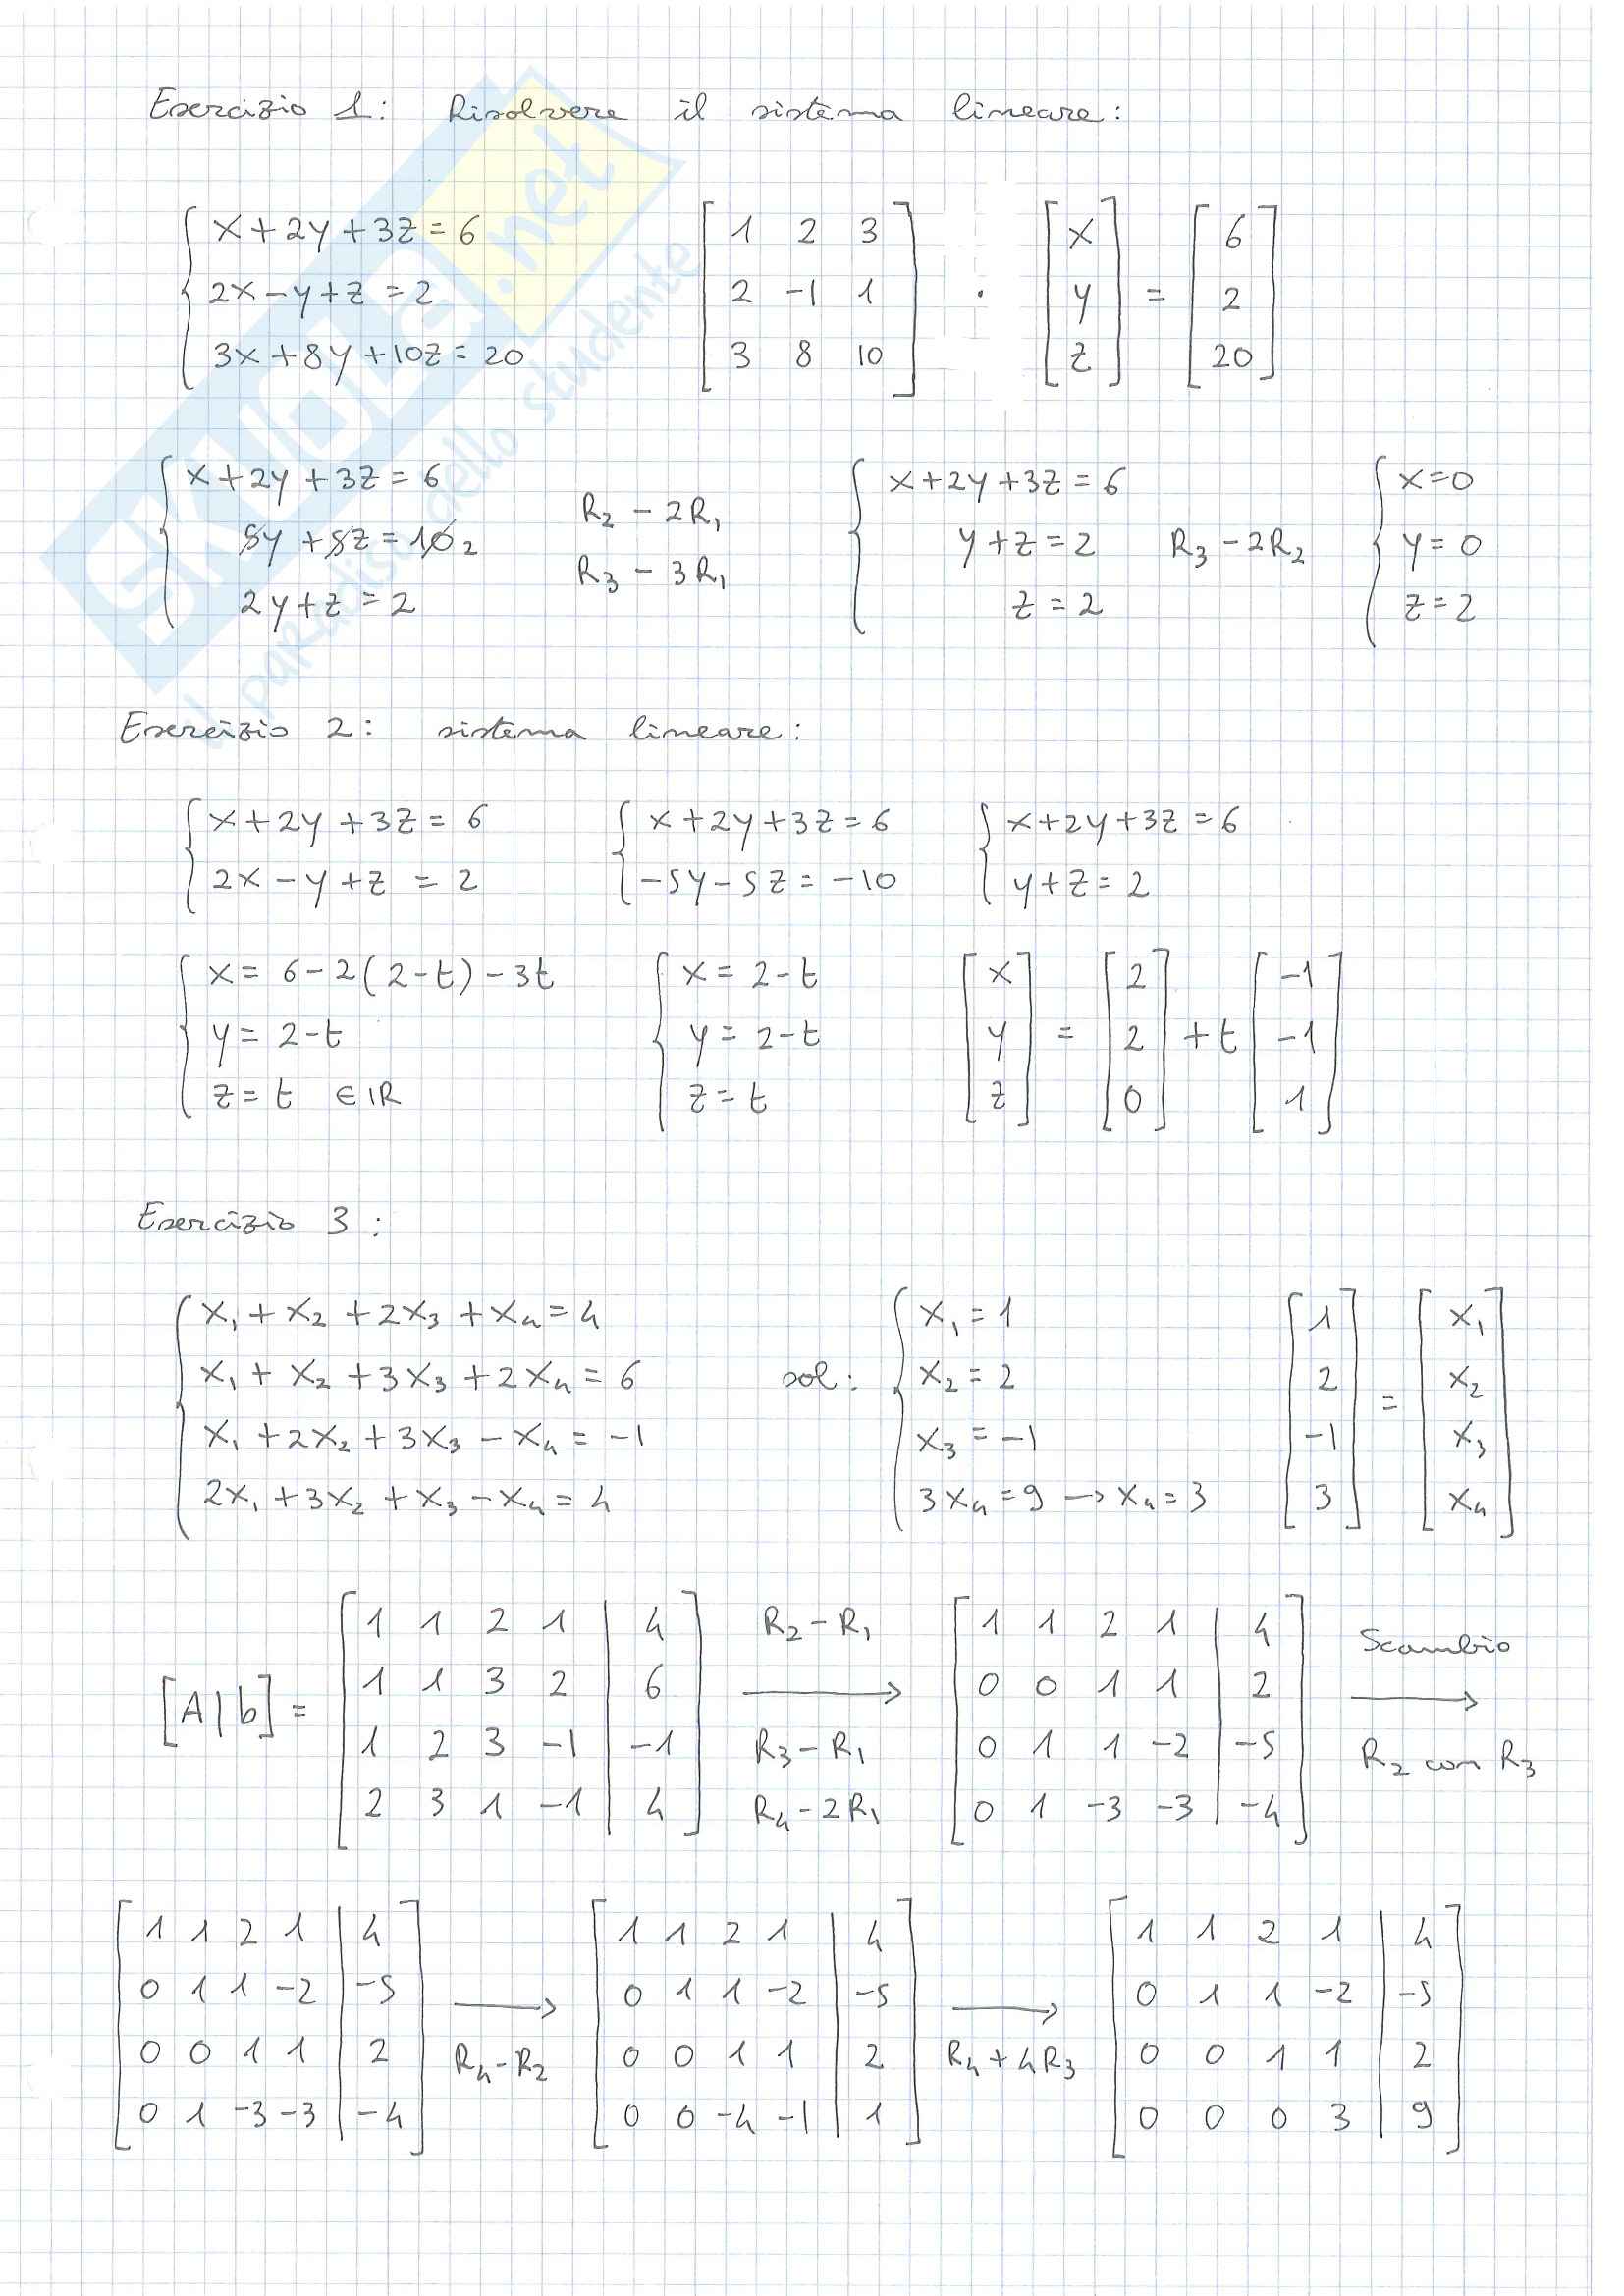 Esercizio 1: Risolvere il sistema lineare:
x+2y+3z=6
2x-y+z=2
3x+8y+10z=20
[1 2 3; 2 -1 1; 3 8 10] · [x; y; z] = [6; 2; 20]
x+2y+3z=6
5y+5z=10 2
2y+z=2
R2 - 2R1
R3 - 3R1
x+2y+3z=6
y+z=2 R3-2R2
z=2
x=0
y=0
z=2
Esercizio 2: sistema lineare:
x+2y+3z=6
2x-y+z=2
x+2y+3z=6
-5y-5z=-10
x+2y+3z=6
y+z=2
x=6-2(2-t)-3t
y=2-t
z=t ∈ IR
x=2-t
y=2-t
z=t
[x; y; z] = [2; 2; 0] + t [-1; -1; 1]
Esercizio 3:
x1+x2+2x3+x4=4
x1+x2+3x3+2x4=6
x1+2x2+3x3-x4=-1
2x1+3x2+x3-x4=4
sol:
x1=1
x2=2
x3=-1
3x4=9 → x4=3
[1; 2; -1; 3] = [x1; x2; x3; x4]
[A|b]=
1 1 2 1 | 4
1 1 3 2 | 6
1 2 3 -1 | -1
2 3 1 -1 | 4
R2-R1
→
R3-R1
R4-2R1
1 1 2 1 | 4
0 0 1 1 | 2
0 1 1 -2 | -5
0 1 -3 -3 | -4
Scambio
→
R2 con R3
1 1 2 1 | 4
0 1 1 -2 | -5
0 0 1 1 | 2
0 1 -3 -3 | -4
→
R4-R2
1 1 2 1 | 4
0 1 1 -2 | -5
0 0 1 1 | 2
0 0 -4 -1 | 1
→
R4+4R3
1 1 2 1 | 4
0 1 1 -2 | -5
0 0 1 1 | 2
0 0 0 3 | 9
SKUOLA.net
il paradiso dello studente